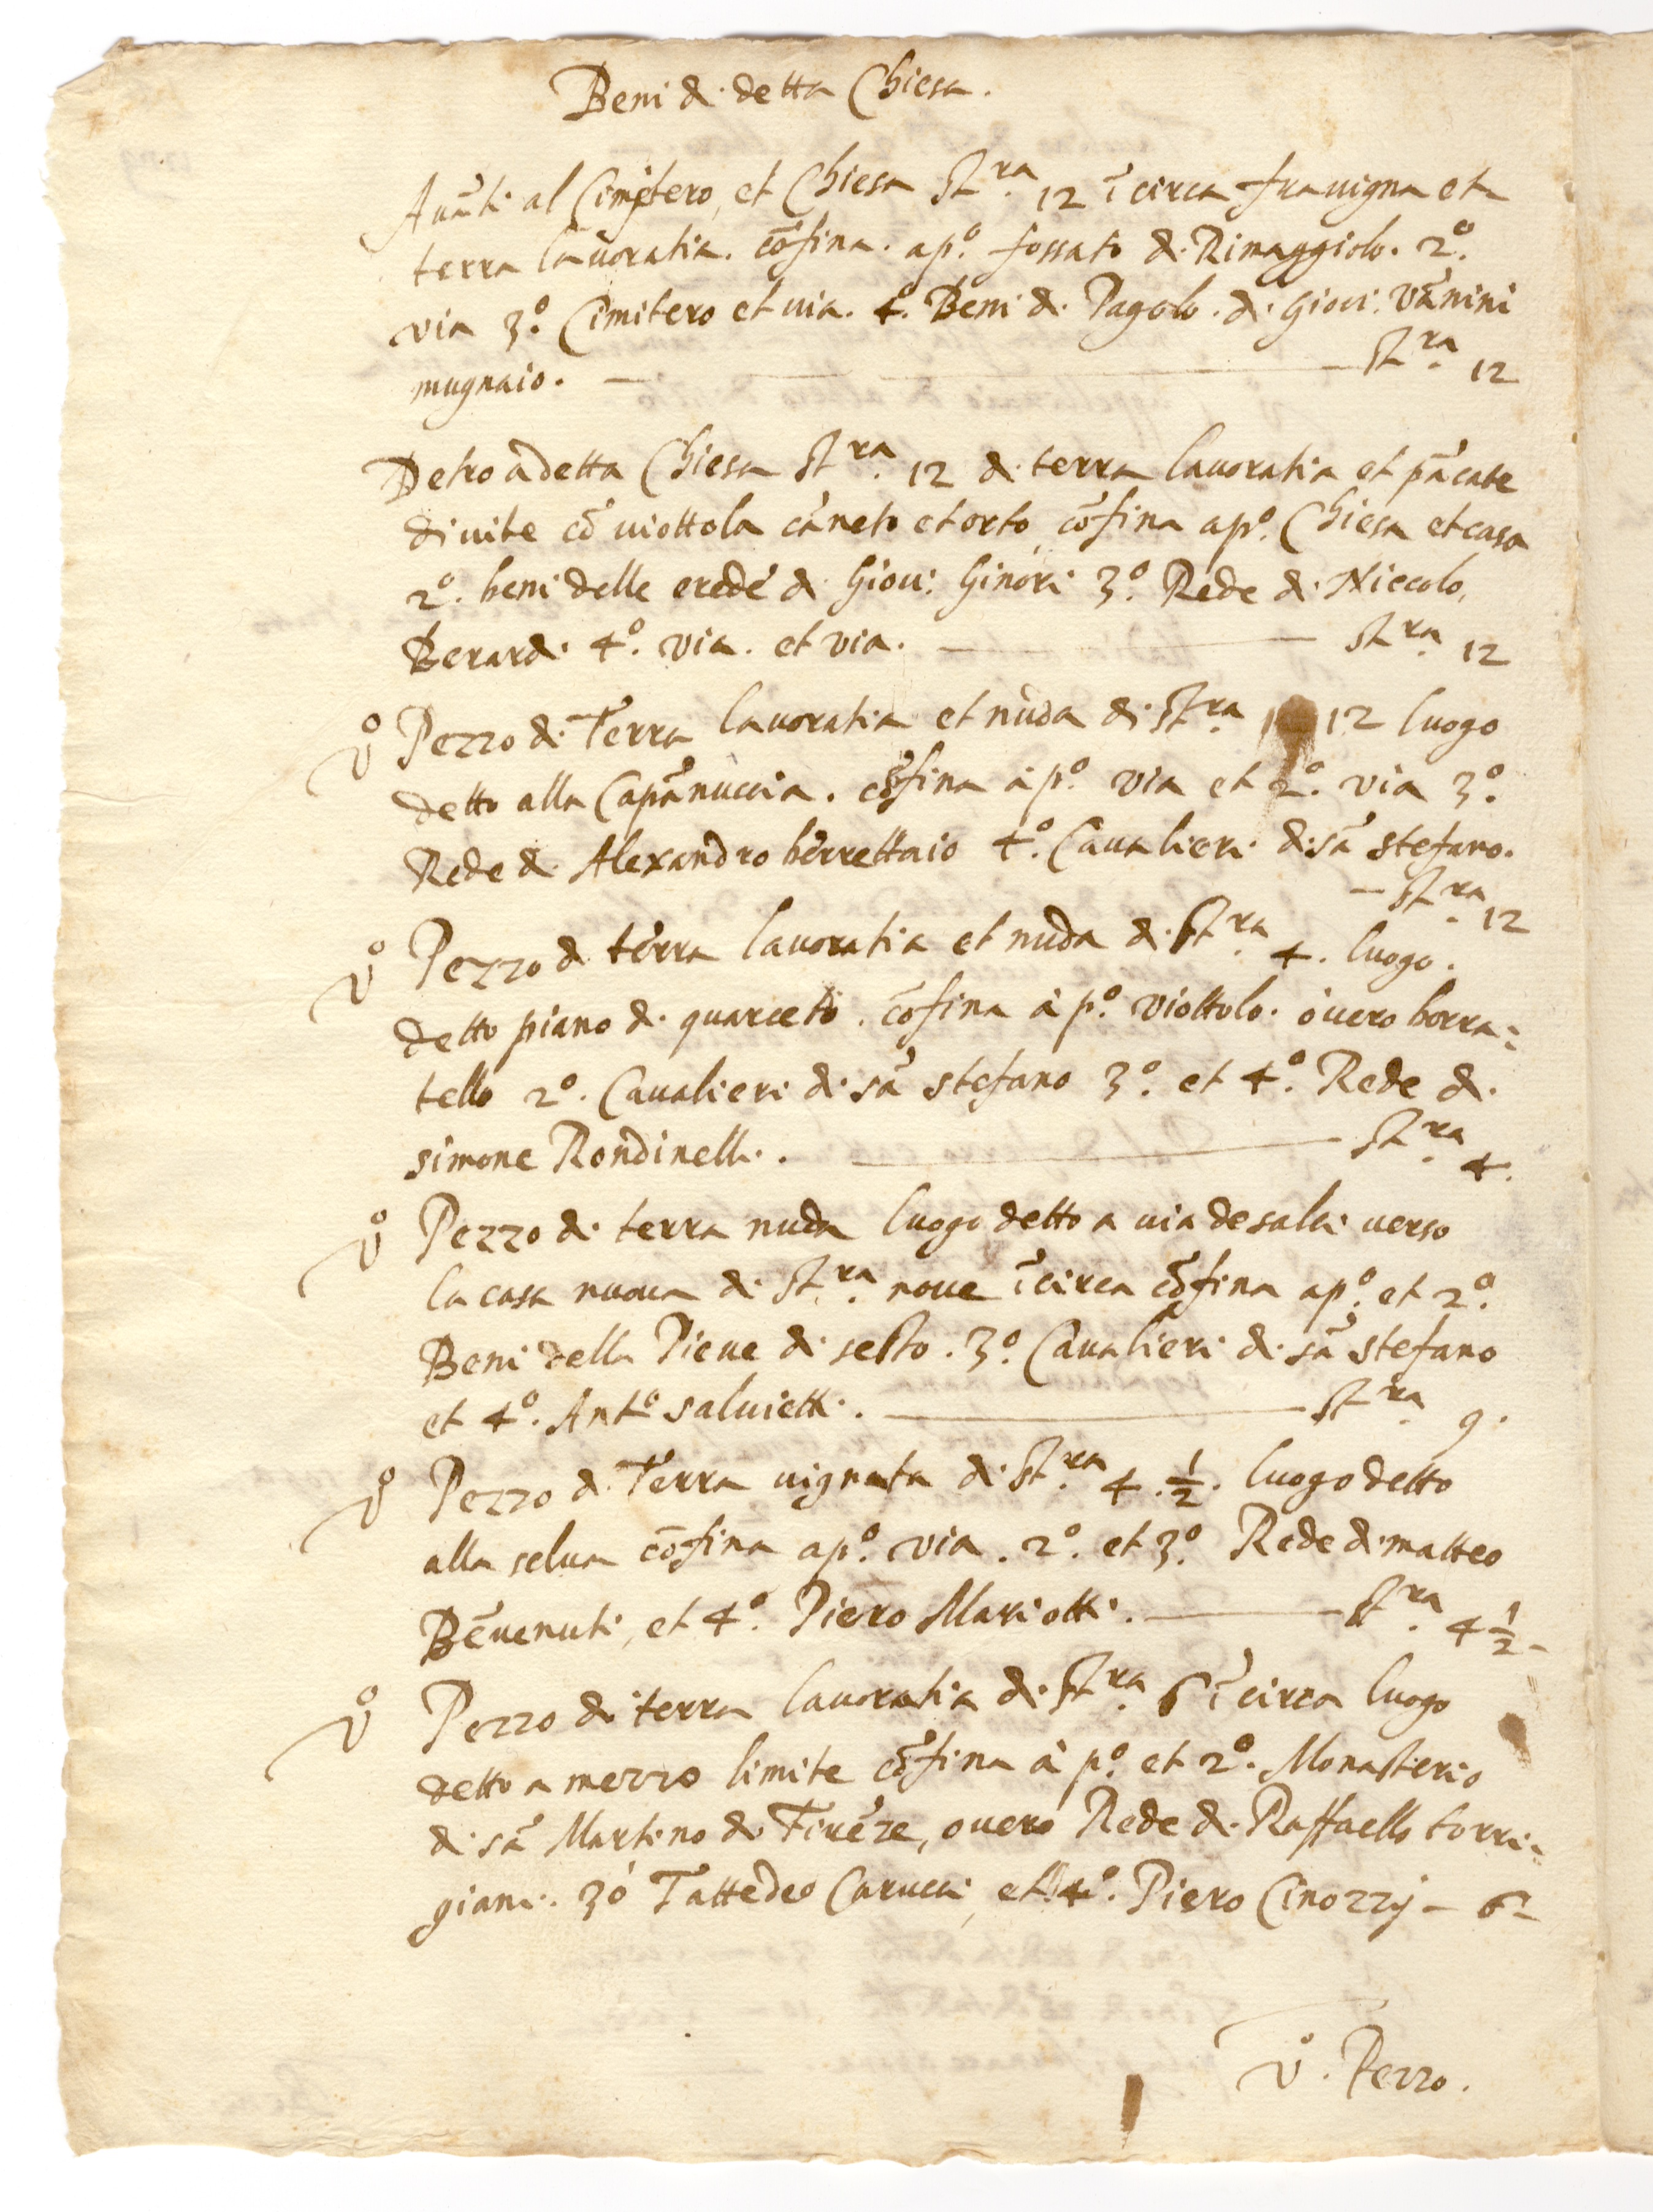 Beni di detta Chiesa.
Auāti al Cimitero, et Chiesa st.ra 12 ī circa fra uigna et
terra lauoratia. cōfina. a p.o fossato di Rimaggiolo. 2.o
via 3.o Cimitero et uia. 4.o Beni di Pagolo. di Giovi: Vānini
mugnaio. — st.ra 12
Detro à detta Chiesa st.ra 12 di terra lauoratia et pācate
di uite cō uiottola cāneto et orto cōfina a p.o Chiesa et casa
2.o beni delle erede di Giovi: Ginori 3.o Rede di Niccolo,
Berardi 4.o via. et via. — st.ra 12
V.o Pezzo di Terra lauoratia et nuda di st.ra 12 luogo
detto alla Capānuccia. cōfina à p.o via et 2.o via 3.o
Rede di Alexandro berrettaio 4.o Caualieri di sā stefano.
— st.ra 12
V.o Pezzo di terra lauoratia et nuda di st.ra 4. luogo.
detto piano di quarceto. cōfina à p.o viottolo. òuero borra=
tello 2.o Caualieri di sā stefano 3.o et 4.o Rede di
simone Rondinelli. — st.ra 4.
V.o Pezzo di terra nuda luogo detto a uia de salci uerso
la casa nuoua di st.ra noue ī circa cōfina a p.o et 2.o
Beni della Pieue di sesto. 3.o Caualieri di sā stefano
et 4.o Ant.o saluietti. — st.ra 9.
V.o Pezzo di Terra uignata di st.ra 4. 1/2. luogo detto
alla selua cōfina a p.o via. 2.o et 3.o Rede di matteo
Bēuenuti, et 4.o Piero Mariotti. — st.ra 4 1/2 -
V.o Pezzo di terra lauoratia di st.ra 6 ī circa luogo
detto a mezzo limite cōfina à p.o et 2.o Monasterio
di sā Martino di Firēze, ouero Rede di Raffaello torri=
giani. 3o Tattedeo Carucci, et 4.o Piero Cinozzj — 6 -
V.o Pezzo.